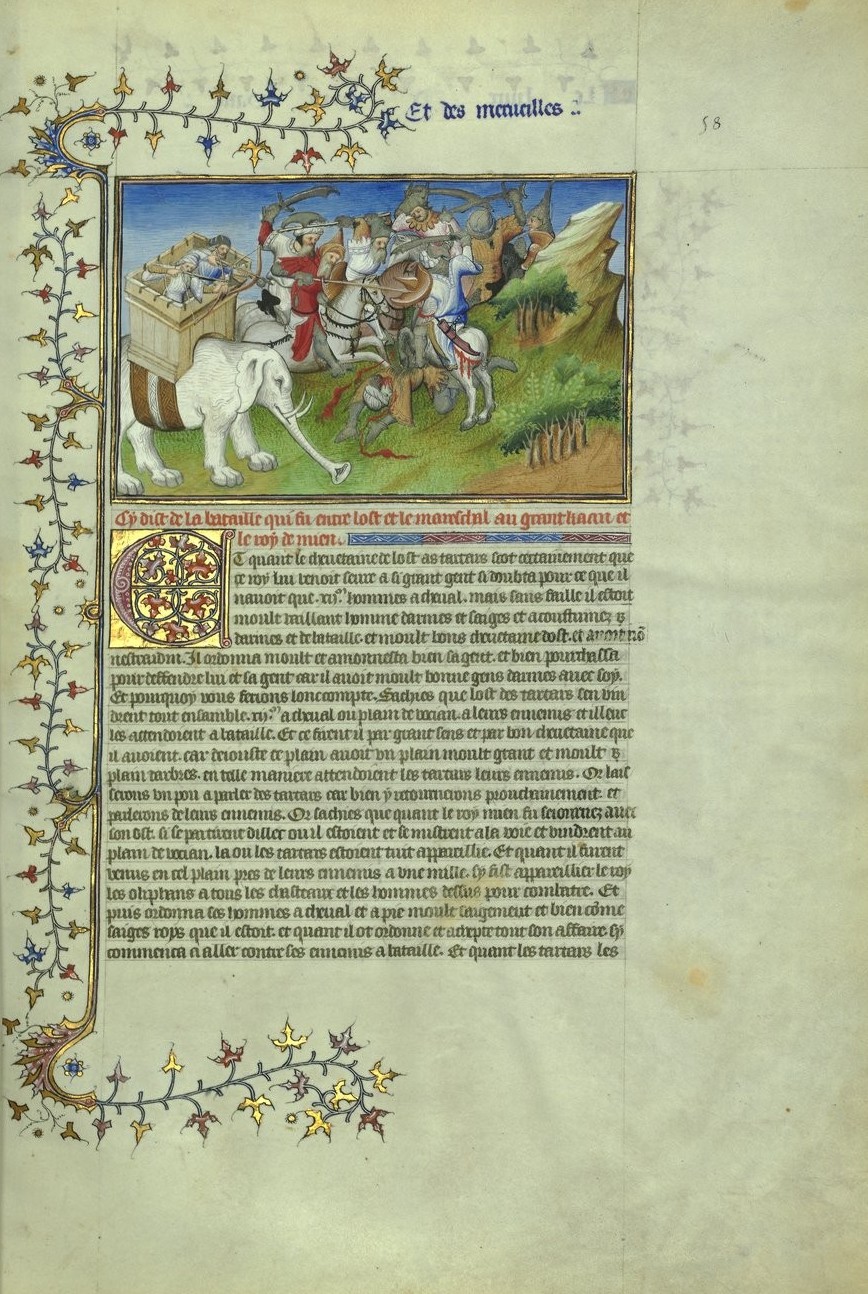 Et des merueilles :.
58
Cy dist de la bataille qui fu entre lost et le mareschal au grant kaan et
le roy de mien.
Et quant le cheuetaine de lost as tartars scot certainement que
ce roy lui venoit seure a si grant gent si doubta pour ce que il
nauoit que .xij.m hommes a cheual. mais sans faille il estoit
moult vaillant homme darmes et saiges et acoustumez
darmes et de bataille. et moult bons cheuetaine dost. et
Il ordonna moult et amonnesta bien sa gent. et bien pourchassa
pour deffendre lui et sa gent car il auoit moult bonne gens darmes auec soy.
Et pourquoy vous ferons lonc compte. Sachies que lost des tartars sen vin
drent tout ensamble .xij.m a cheual ou plain de vocian. a leurs ennemis et illeuc
les attendoient a bataille. Et ce firent il par grant sens et par bon cheuetaine que
il auoient. car dejouste ce plain auoit vn plain moult grant et moult
plain darbres. en telle maniere attendoient les tartars leurs ennemis. Or lais
serons vn pou a parler des tartars car bien y retournerons prouchainement. et
parlerons de leurs ennemis. Or sachies que quant le roy mien fu seiournez auec
son ost. si se partirent dillec ou il estoient et se mistrent a la voie et vindrent au
plain de vocian. la ou les tartars estoient tuit appareillie. Et quant il furent
venus en cel plain pres de leurs ennemis a vne mille. sy fist appareillier le roy
les oliphans a tous les chasteaux et les hommes dessus pour combatre. Et
puis ordonna ses hommes a cheual et a pie moult saigement et bien come
saiges roys que il estoit. et quant il ot ordonne et tout son affaire. sy
commenca a aller contre ses ennemis a bataille. Et quant les tartars les